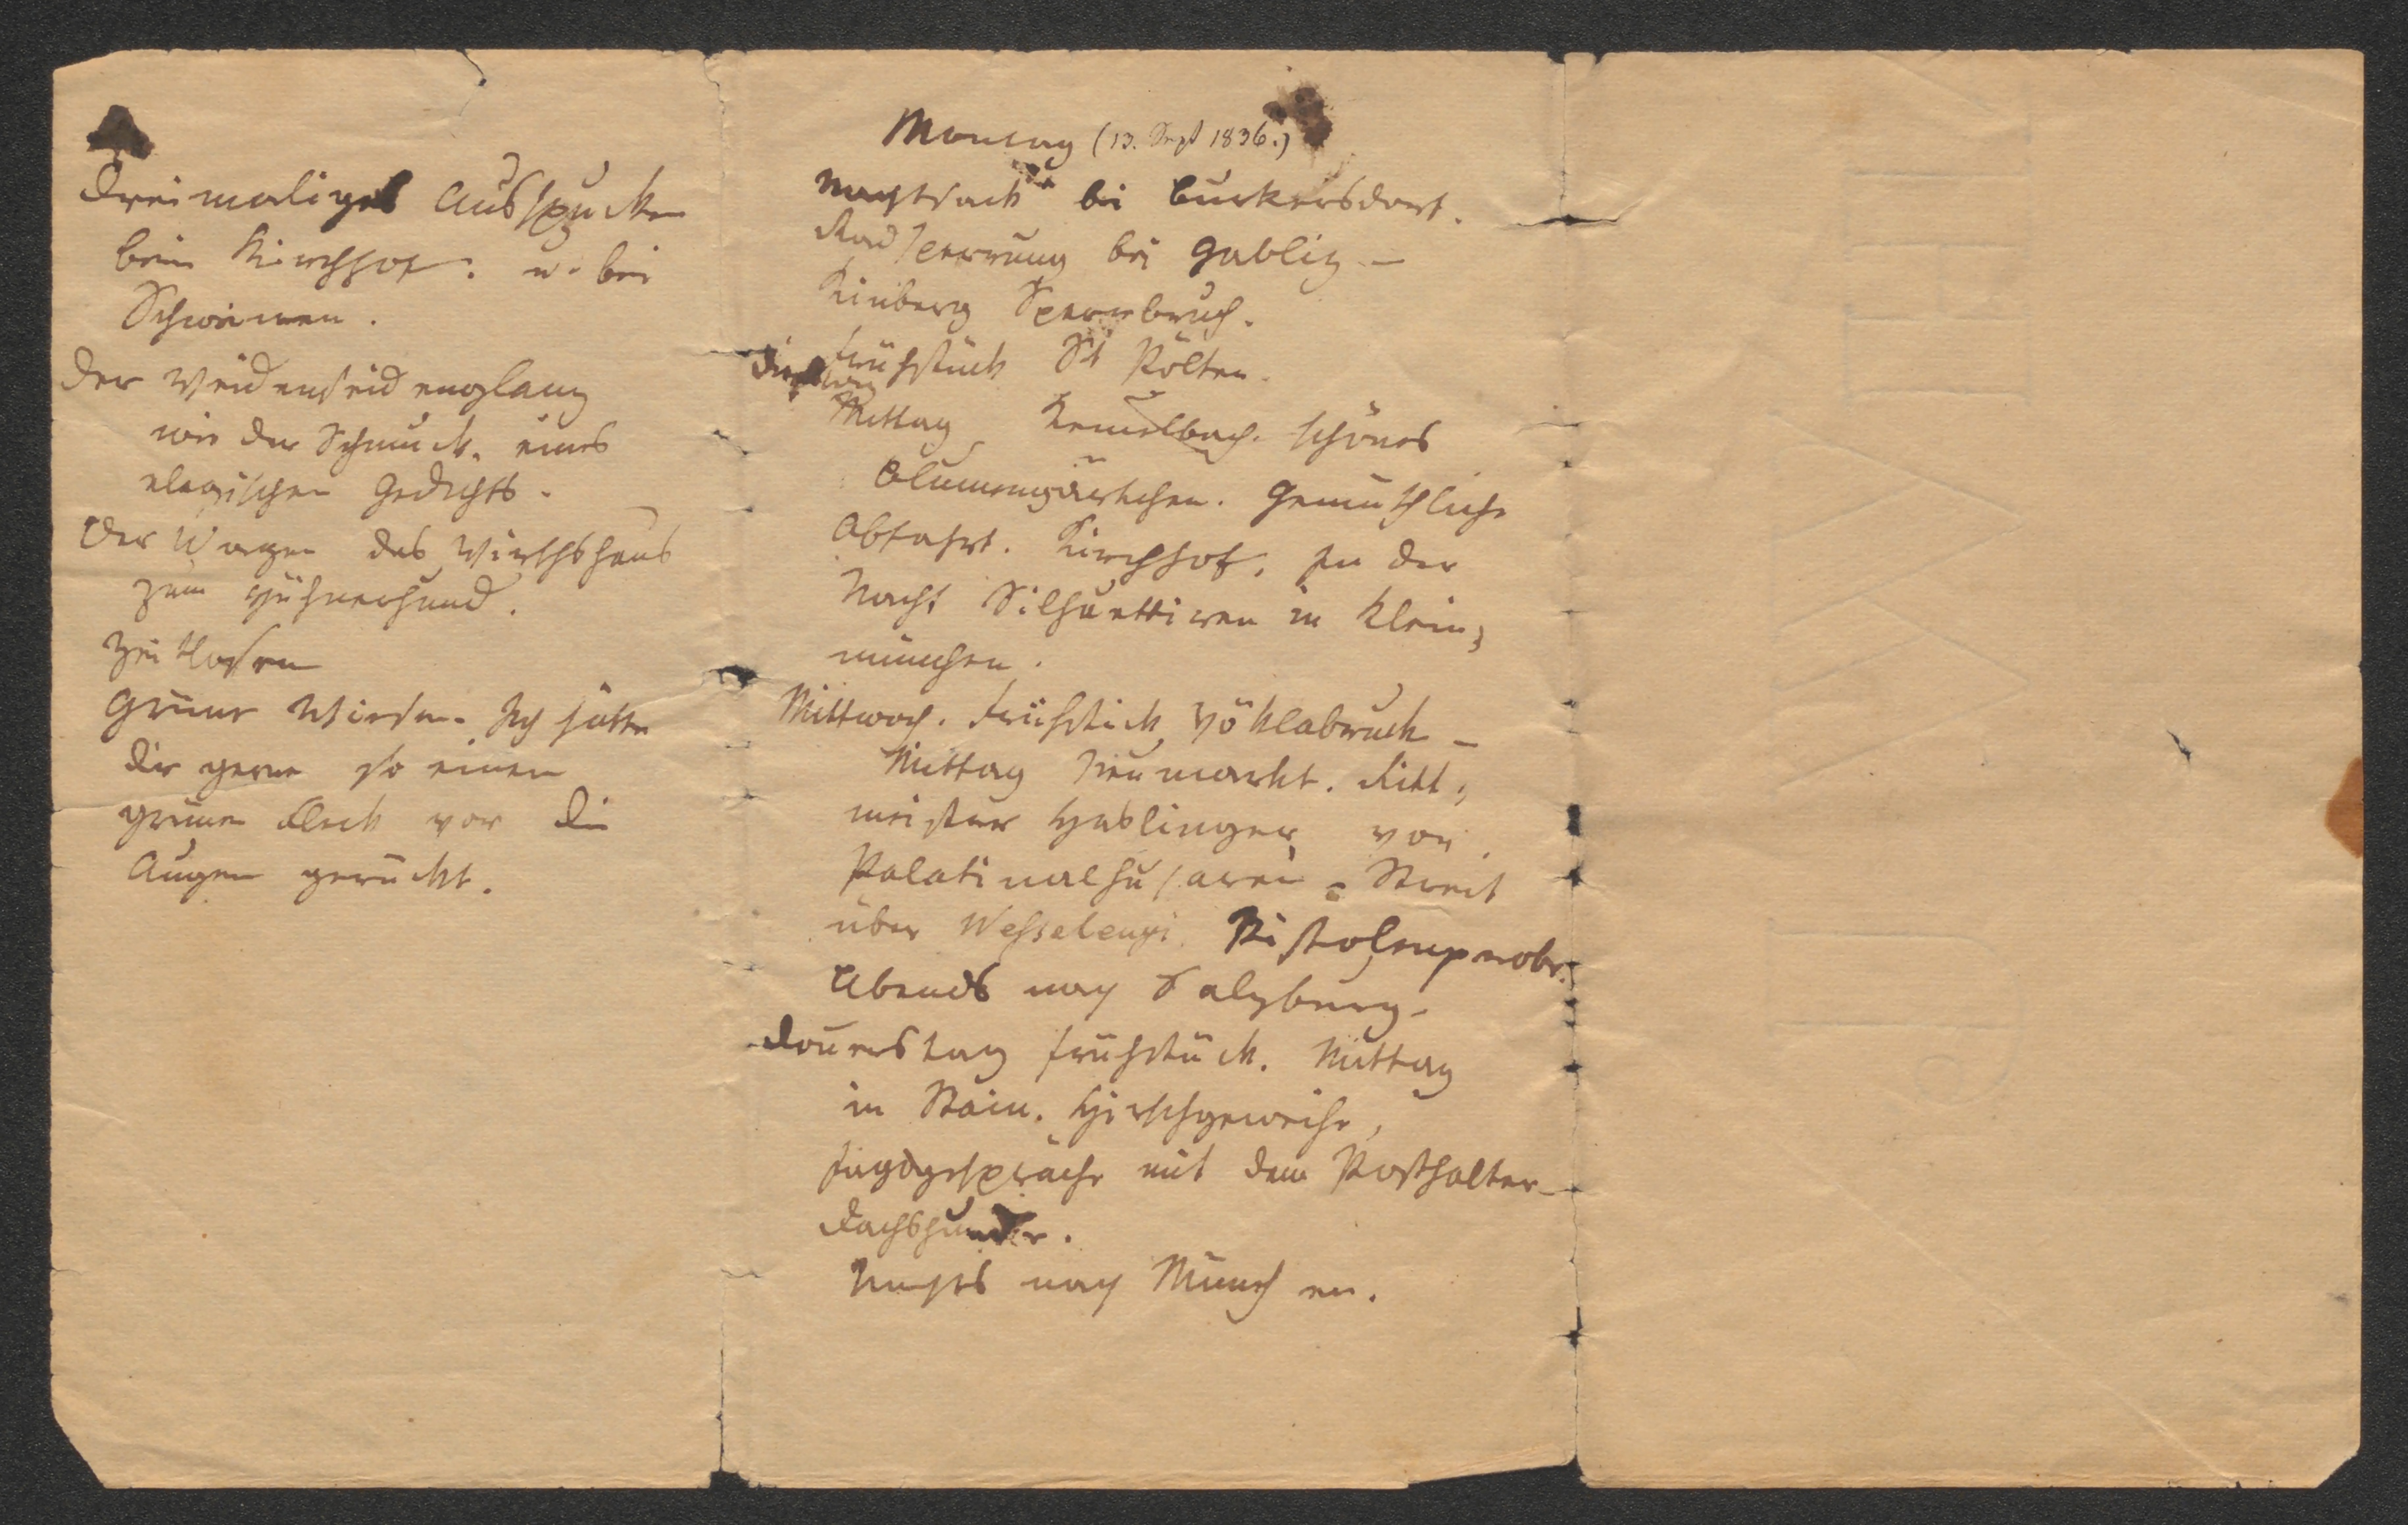 dreimaliges Ausspucken
beim Kirchhof. u. bei
Schweinen.
Der Weidenseidenglanz
wie der Schmuck eines
elegischen Gedichts.
Der Wagen des Wirthshaus
zum Hühnerhund.
Zeitlosen
Grüne Wiesen. Ich hätte
dir gerne so einen
grünen Fleck vor die
Augen gerückt.
Montag (13. Sept 1836.)
Nachtsack bei Burkersdorf.
Radsperrung bei Gablitz –
Rieberg Sperrbruch.
Frühstück St Pölten.
Dienstag
Mittag Kemelbach. schönes
Blumengärtchen. Gemüthliche
Abfahrt. Kirchhof. In der
Nacht Silhuettiren in Klein-
münchen.
Mittwoch. Frühstück Vöklabruck –
Mittag Neumarkt. Ritt-
meister Haslinger von
Palatinalhusaren. Streit
über Wesselenyi. Pistolenprobe.
Abends nach Salzburg.
Donnerstag Frühstück. Mittag
in Stein. Hirschgeweihe,
Jagdgespräche mit dem Posthalter –
Dachshunde.
Nachts nach München.